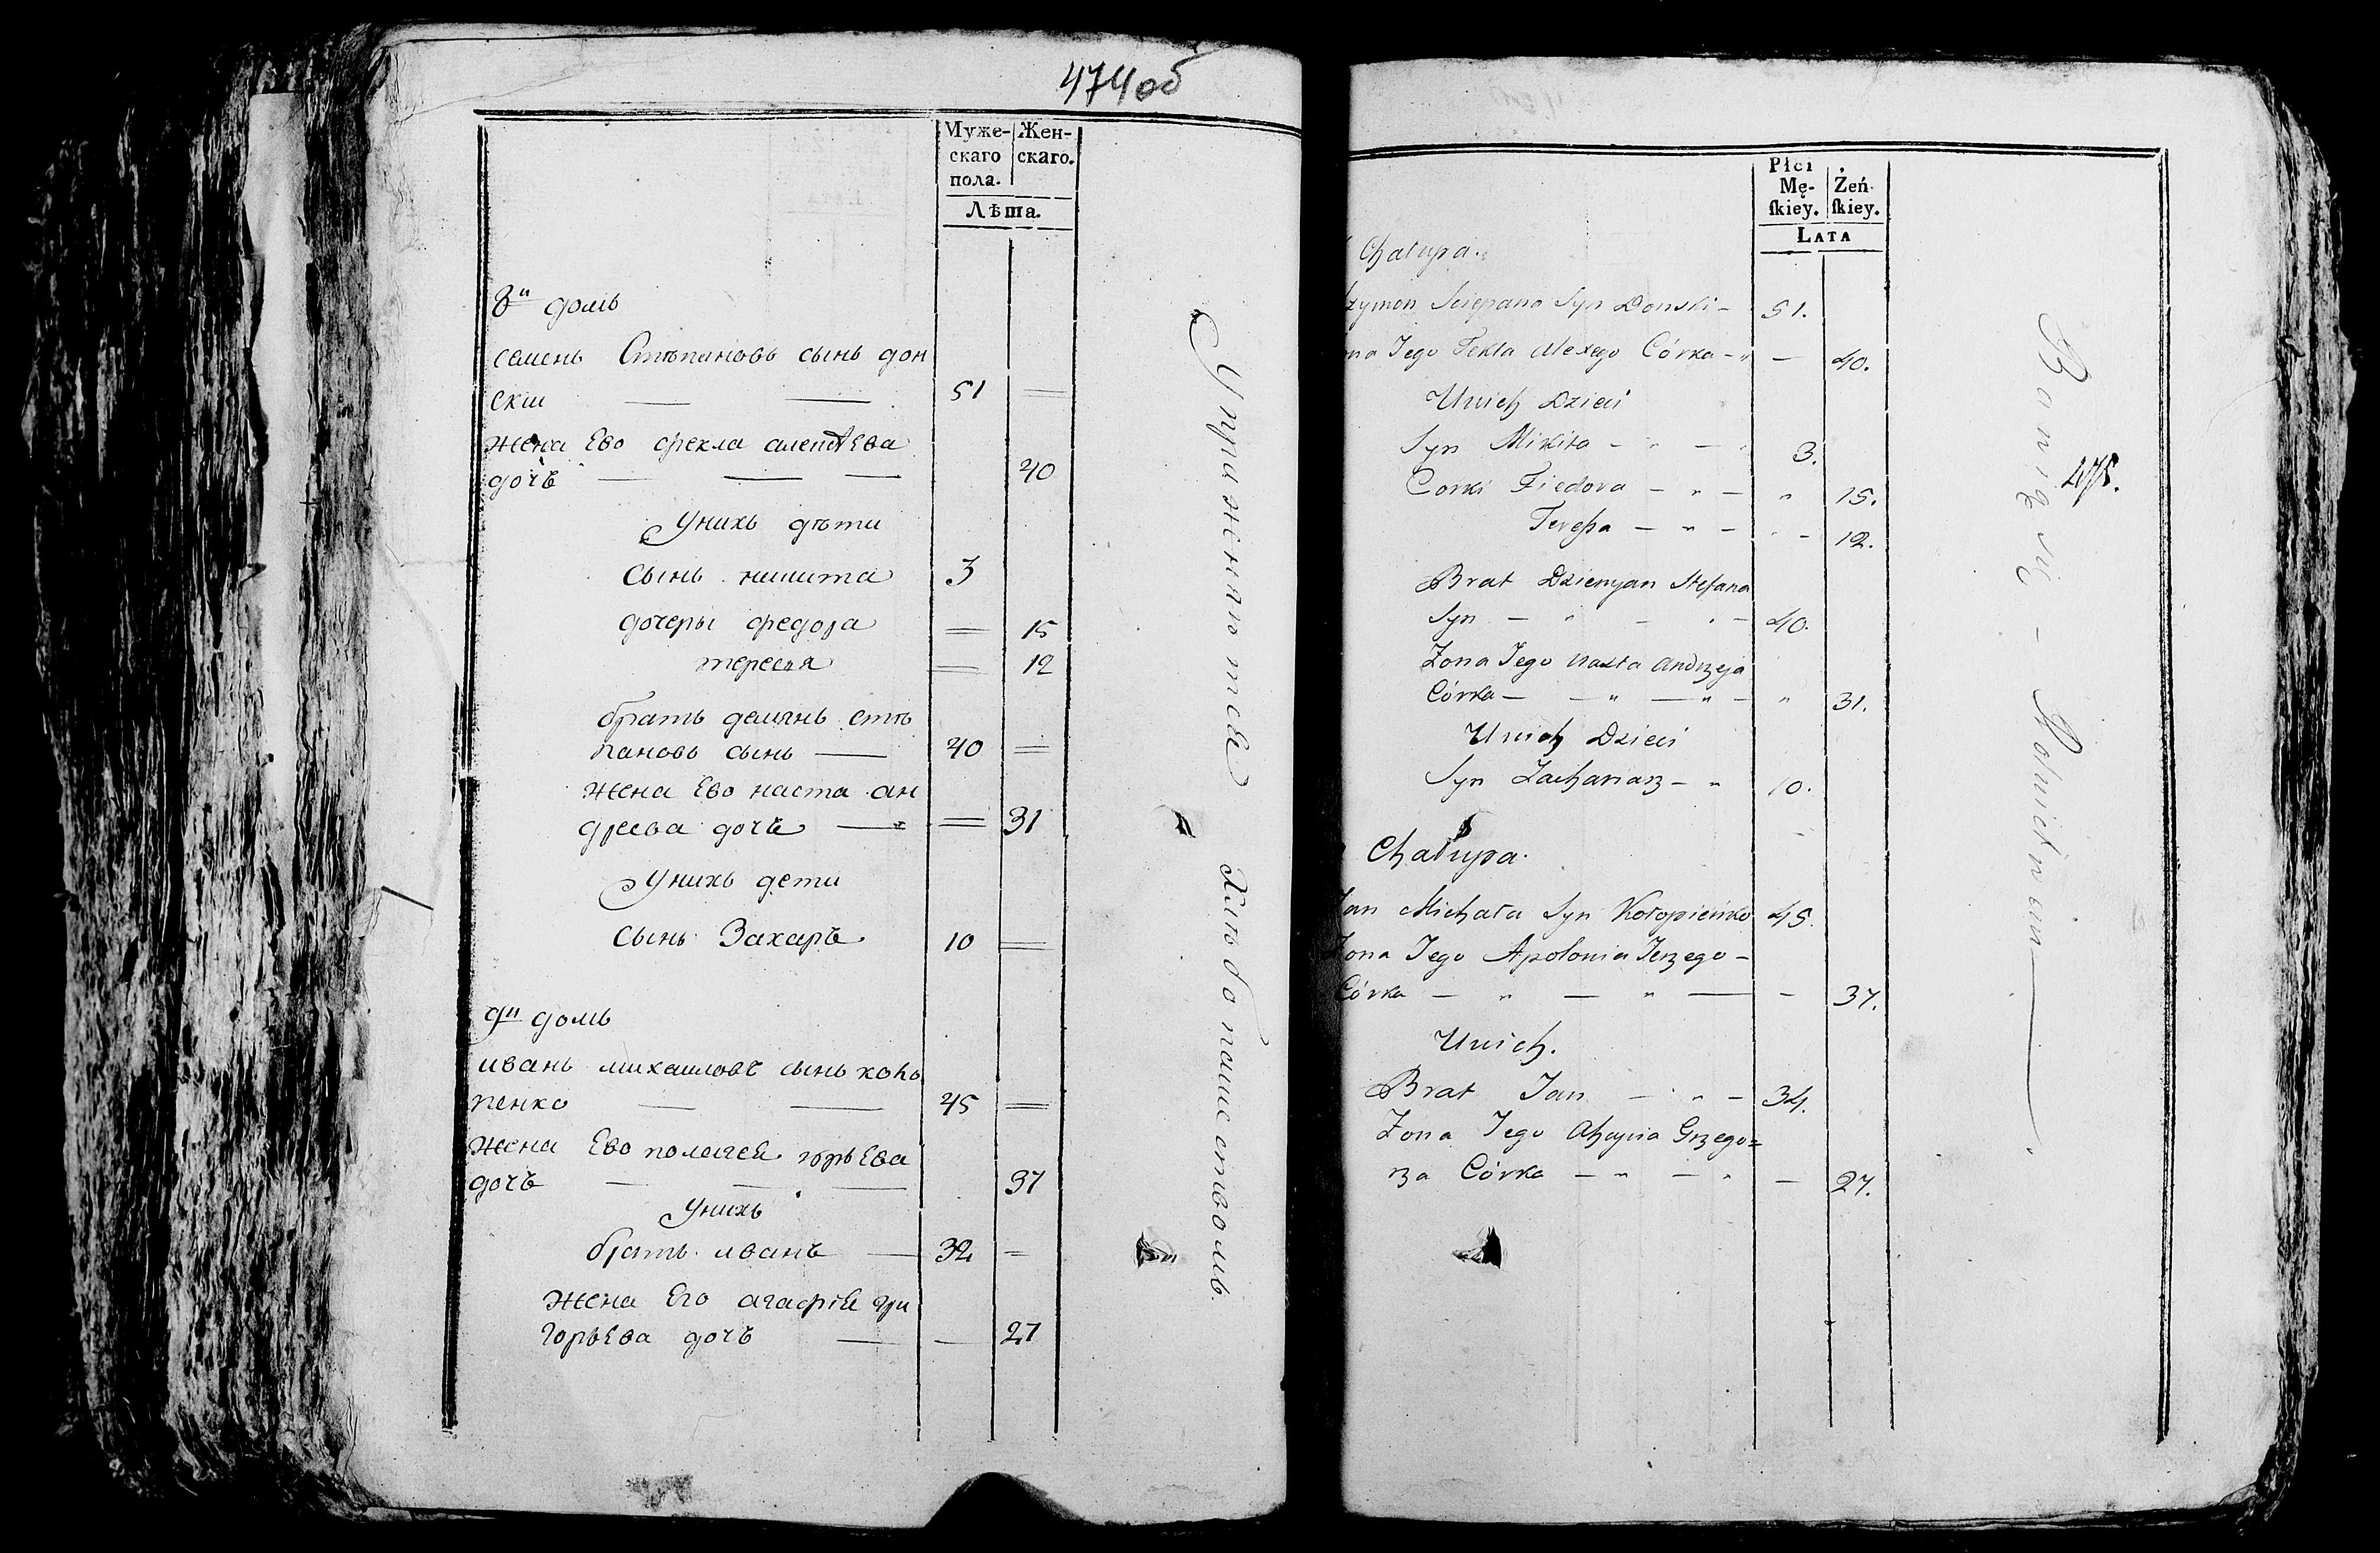 474об
Муже- Жен-
скаго скаго.
пола.
Лѣта.
8й домъ
семенъ Стѣпановъ сынъ дон
скии 51
жена Ево фекла алексѣева
дочь 40
Унихъ дѣти
сынъ никита 3
дочеры федора 15
тереса 12
братъ демянъ стѣ
пановъ сынъ 40
жена Ево наста ан
дреева дочь 31
Унихъ дети
сынъ Захаръ 10
9й домъ
иванъ михаиловъ сынъ коло
пенко 45
жена Ево полагея юрьева
дочь 37
Унихъ
братъ иванъ 32
жена Его агафия гри
горьева дочь 27
Упражняютса хлѣбопашествомъ.
Płci
Mę- Żeń-
ſkiey. ſkiey.
LATA
475.
Chałupa.
zymon Sciepana Syn Donski 51.
na Jego Tekla Alexego Córka 40.
Unich Dzieci
Syn Mikita 3.
Corki Fiedora 15.
Teressa 12.
Brat Dziemjan Stefana
Syn 40.
Zona Jego Nasta Andrzeja
Córka 31.
Unich Dzieci
Syn Zachariasz 10.
Chałupa.
Jan Michała Syn Kołopieńko 45.
Zona Jego Apolonia Jerzego
Córka 37.
Unich.
Brat Jan 34.
Zona Jego Ahapia Grzego=
rza Córka 27.
Bawią się Rolnictwem